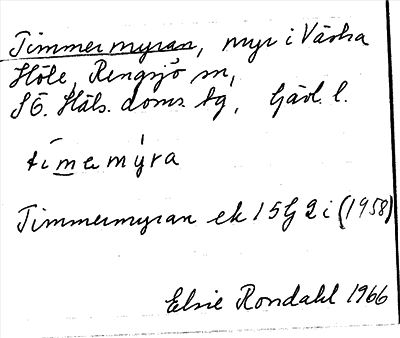 Timmermyran, myr i Västra
Höle, Rengsjö sn,
SÖ. Häls. doms. tg, Gävl. l.
tìmermýra
Timmermyran ek 15G2i (1958)
Elsie Rondahl 1966